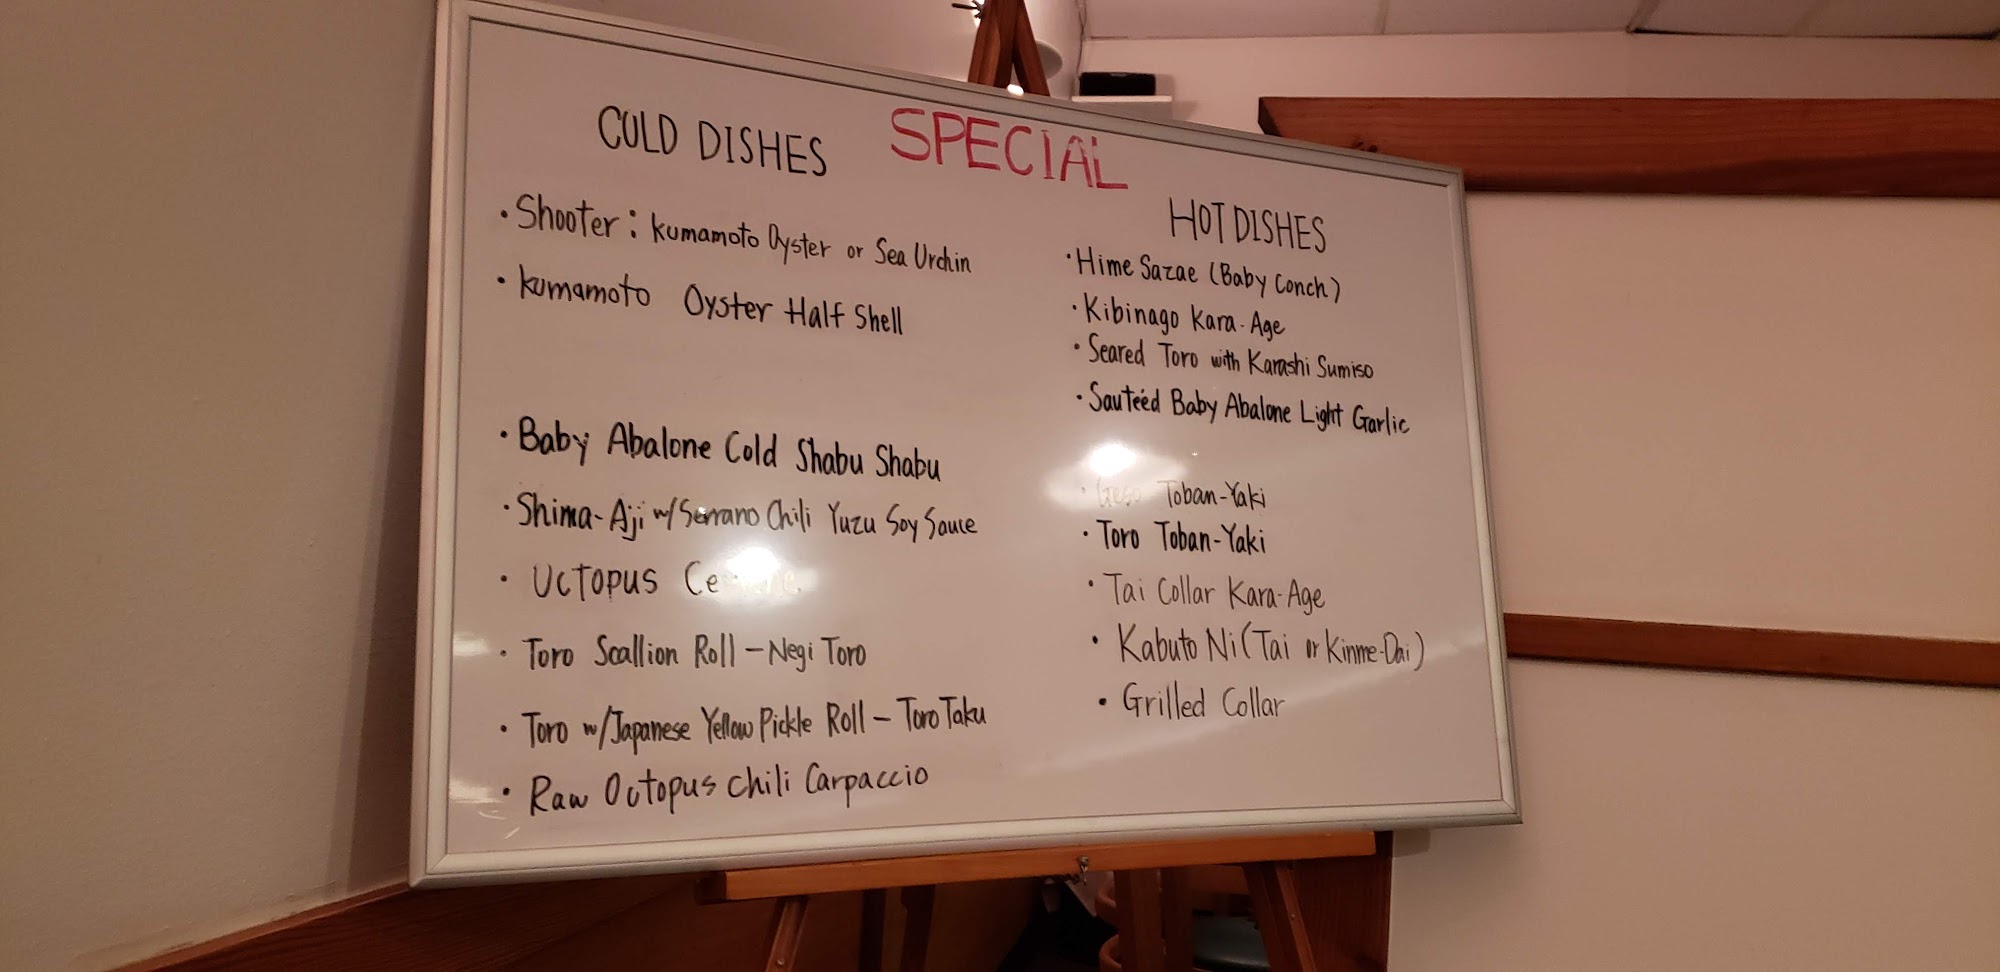 SPECIAL
COLD DISHES
• Shooter: Kumamoto Oyster or Sea Urchin
• Kumamoto Oyster Half Shell
• Baby Abalone Cold Shabu Shabu
• Shima-Aji w/Serrano Chili Yuzu Soy Sauce
• Octopus
• Toro Scallion Roll – Negi Toro
• Toro w/Japanese Yellow Pickle Roll – Toro Taku
• Raw Octopus Chili Carpaccio
HOT DISHES
• Hime Sazae (Baby Conch)
• Kibinago Kara-Age
• Seared Toro with Karashi Sumiso
• Sauteéd Baby Abalone Light Garlic
• Geso Toban-Yaki
• Toro Toban-Yaki
• Tai Collar Kara-Age
• Kabuto Ni (Tai or Kinme-Dai)
• Grilled Collar